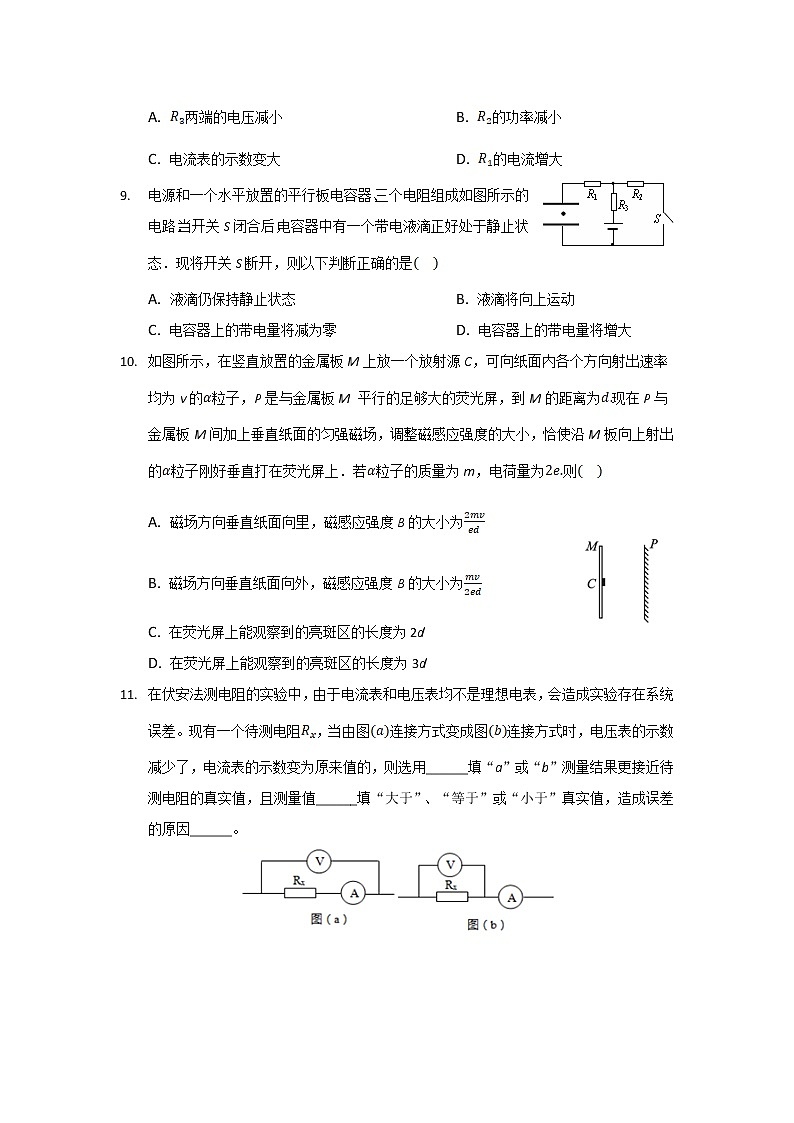 A. R₃两端的电压减小 B. R₂的功率减小
C. 电流表的示数变大 D. R₁的电流增大
9. 电源和一个水平放置的平行板电容器、三个电阻组成如图所示的
电路.当开关S闭合后,电容器中有一个带电液滴正好处于静止状
态.现将开关S断开，则以下判断正确的是( )
R₁ R₂
R₃
S
A. 液滴仍保持静止状态 B. 液滴将向上运动
C. 电容器上的带电量将减为零 D. 电容器上的带电量将增大
10. 如图所示，在竖直放置的金属板M上放一个放射源C，可向纸面内各个方向射出速率
均为v的α粒子，P是与金属板M 平行的足够大的荧光屏，到M的距离为d.现在P与
金属板M间加上垂直纸面的匀强磁场，调整磁感应强度的大小，恰使沿M板向上射出
的α粒子刚好垂直打在荧光屏上．若α粒子的质量为m，电荷量为2e.则( )
A. 磁场方向垂直纸面向里，磁感应强度B的大小为2mv/ed
B. 磁场方向垂直纸面向外，磁感应强度B的大小为mv/2ed
C. 在荧光屏上能观察到的亮斑区的长度为2d
D. 在荧光屏上能观察到的亮斑区的长度为3d
M P
C
11. 在伏安法测电阻的实验中，由于电流表和电压表均不是理想电表，会造成实验存在系统
误差。现有一个待测电阻Rₓ，当由图(a)连接方式变成图(b)连接方式时，电压表的示数
减少了，电流表的示数变为原来值的，则选用______填“a”或“b”测量结果更接近待
测电阻的真实值，且测量值______填“大于”、“等于”或“小于”真实值，造成误差
的原因______。
V V
Rx A Rx A
图（a） 图（b）